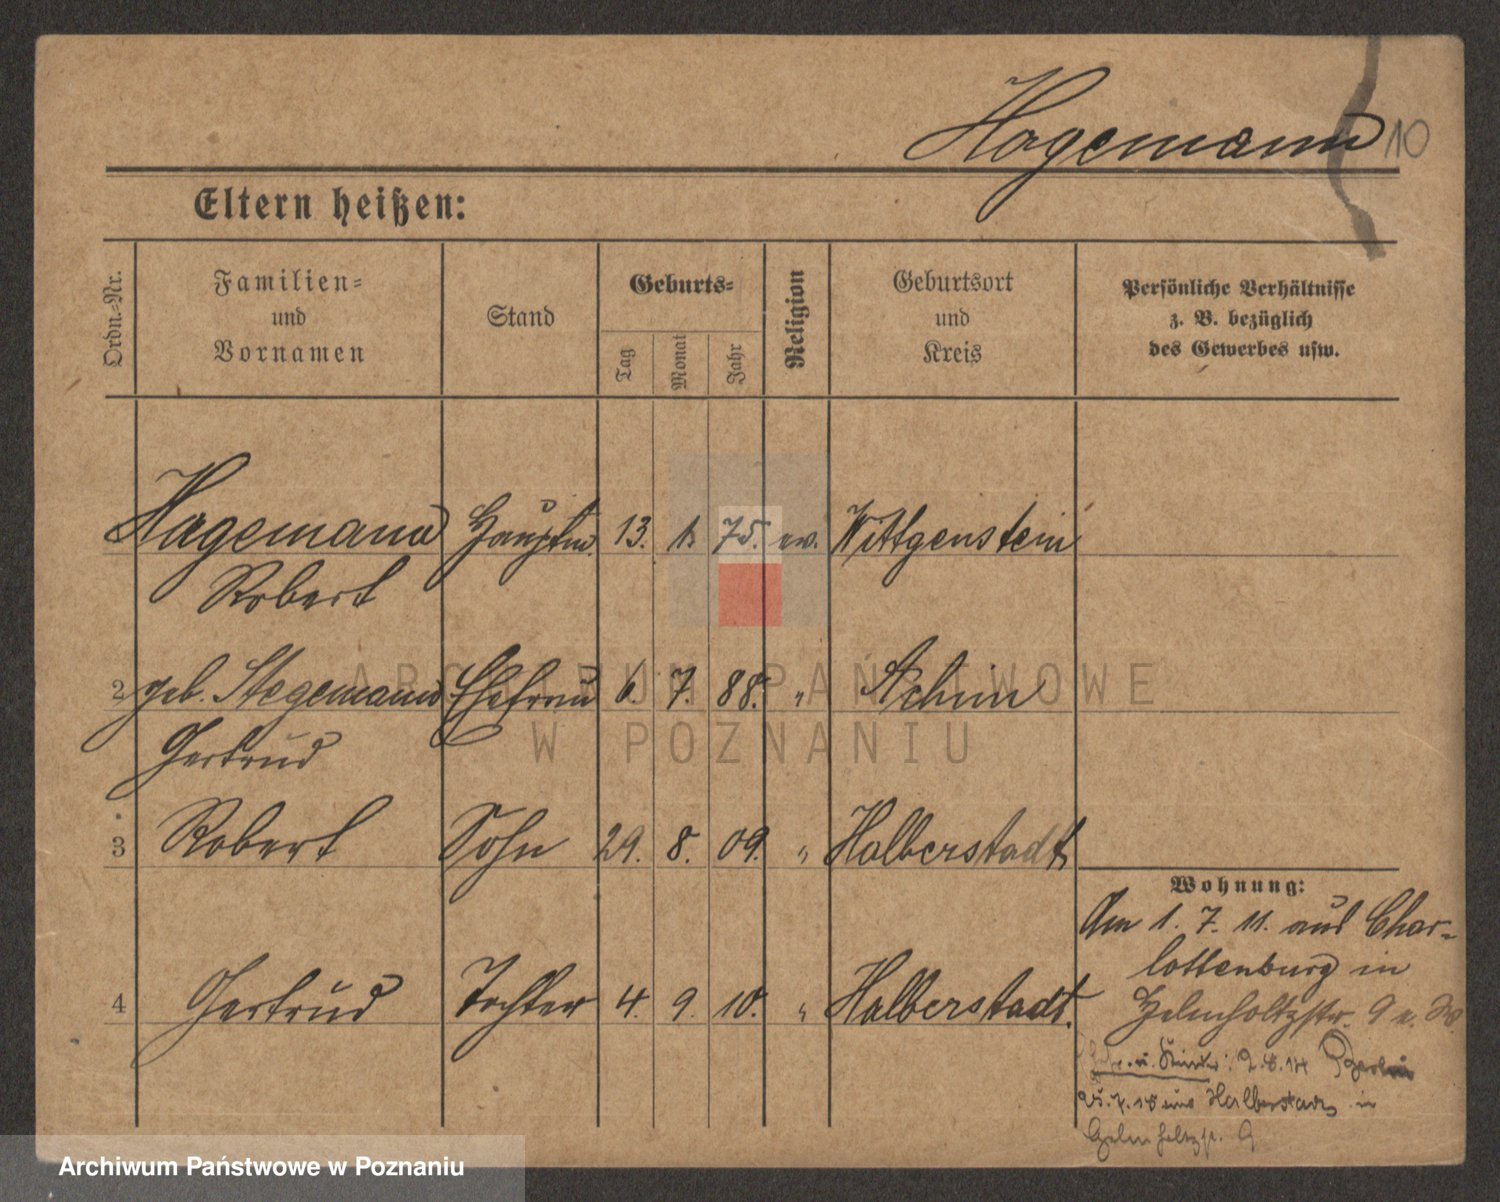 Hagemann 10
Eltern heißen:
Ordn.-Nr.
Familien-
und
Vornamen
Stand
Geburts-
Tag
Monat
Jahr
Religion
Geburtsort
und
Kreis
Persönliche Verhältnisse
z. B. bezüglich
des Gewerbes usw.
Hagemann Hauptm. 13. 75. ev. Wittgenstein
Robert
2 geb. Stegemann Ehefrau 6. 7. 88. "
Gertrud
3 Robert Sohn 29. 8. 09. " Halberstadt
Wohnung:
Am 1. 7. 11. aus Char-
lottenburg in
4 Gertrud Tochter 4. 9. 10. " Halberstadt.
Helmholtzstr. 9
u. Kinder: 2.8.14
Halberstadt in
Helmholtzstr. 9
ARCHIWUM PAŃSTWOWE
W POZNANIU
Archiwum Państwowe w Poznaniu